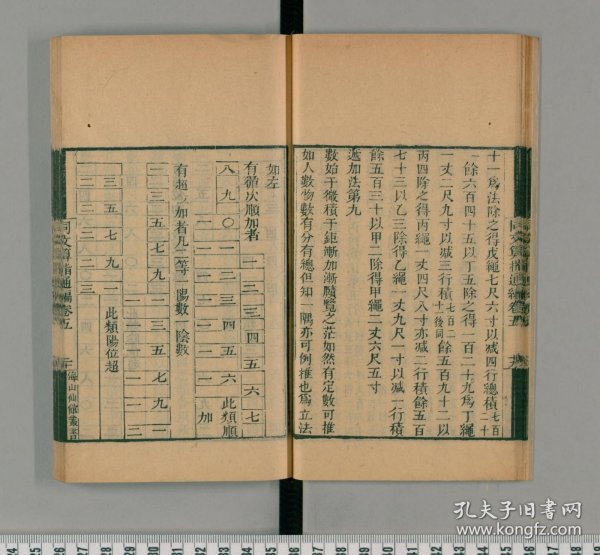 十一爲法除之得戊繩七尺六寸以減四行總積七百二十
餘六百四十五以丁五除之得一百二十九爲丁繩
一丈二尺九寸以減三行積七百二十一後同餘五百九十二以
丙四除之得丙繩一丈四尺八寸亦減二行積餘五百
七十三以乙三除得乙繩一丈九尺一寸以減一行積
餘五百三十以甲二除得甲繩二丈六尺五寸
遞加法第九
數始于微積于鉅漸加漸賾覽之茫如然有定數可推
如人數物數有分有總但知一隅亦可例推也爲立法
如左
有循次順加者
一二三四五六七
八九〇一二三四五六此類順加
有超位加者凡二等一陽數一陰數
一三五七九一三五七九一
三五七九一此類陽位超
同文算指通編卷五
海山仙館叢書
孔夫子旧书网
www.kongfz.com
24 25 26 27 28 29 30 31 32 33 34 35 36 37 38 39 40 41 42 43 44 45 46 47 48